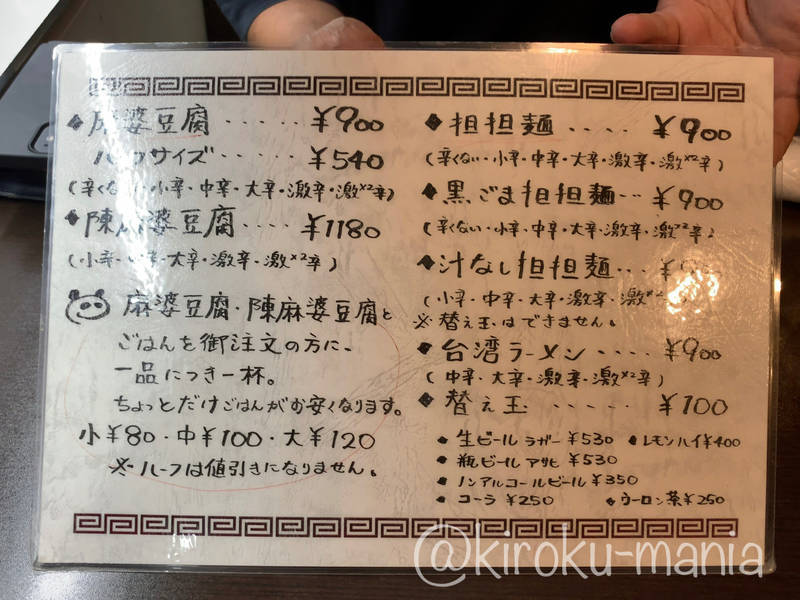 麻婆豆腐・・・・・¥900
ハーフサイズ・・・・・¥540
(辛くない・小辛・中辛・大辛・激辛・激×2辛)
陳麻婆豆腐・・・・¥1180
(小辛・中辛・大辛・激辛・激×2辛)
麻婆豆腐・陳麻婆豆腐と
ごはんを御注文の方に、
一品につき一杯。
ちょっとだけごはんがお安くなります。
小¥80・中¥100・大¥120
※ハーフは値引きになりません。
担担麺・・・・¥900
(辛くない・小辛・中辛・大辛・激辛・激×2辛)
黒ごま担担麺・・¥900
(辛くない・小辛・中辛・大辛・激辛・激×2辛)
汁なし担担麺・・・¥
(小辛・中辛・大辛・激辛・激×2辛)
※替え玉はできません。
台湾ラーメン・・・・¥900
(中辛・大辛・激辛・激×2辛)
替え玉・・・・・¥100
・生ビール ラガー ¥530 ・レモンハイ¥400
・瓶ビール アサヒ ¥530
・ノンアルコールビール ¥350
・コーラ ¥250 ・ウーロン茶¥250
@kiroku-mania